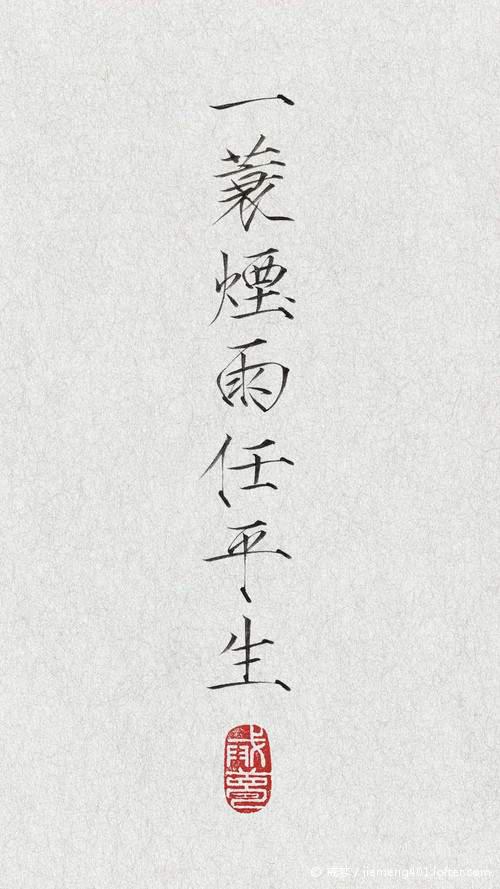 一蓑煙雨任平生
戒夢
戒梦 / jiemeng401.lofter.com